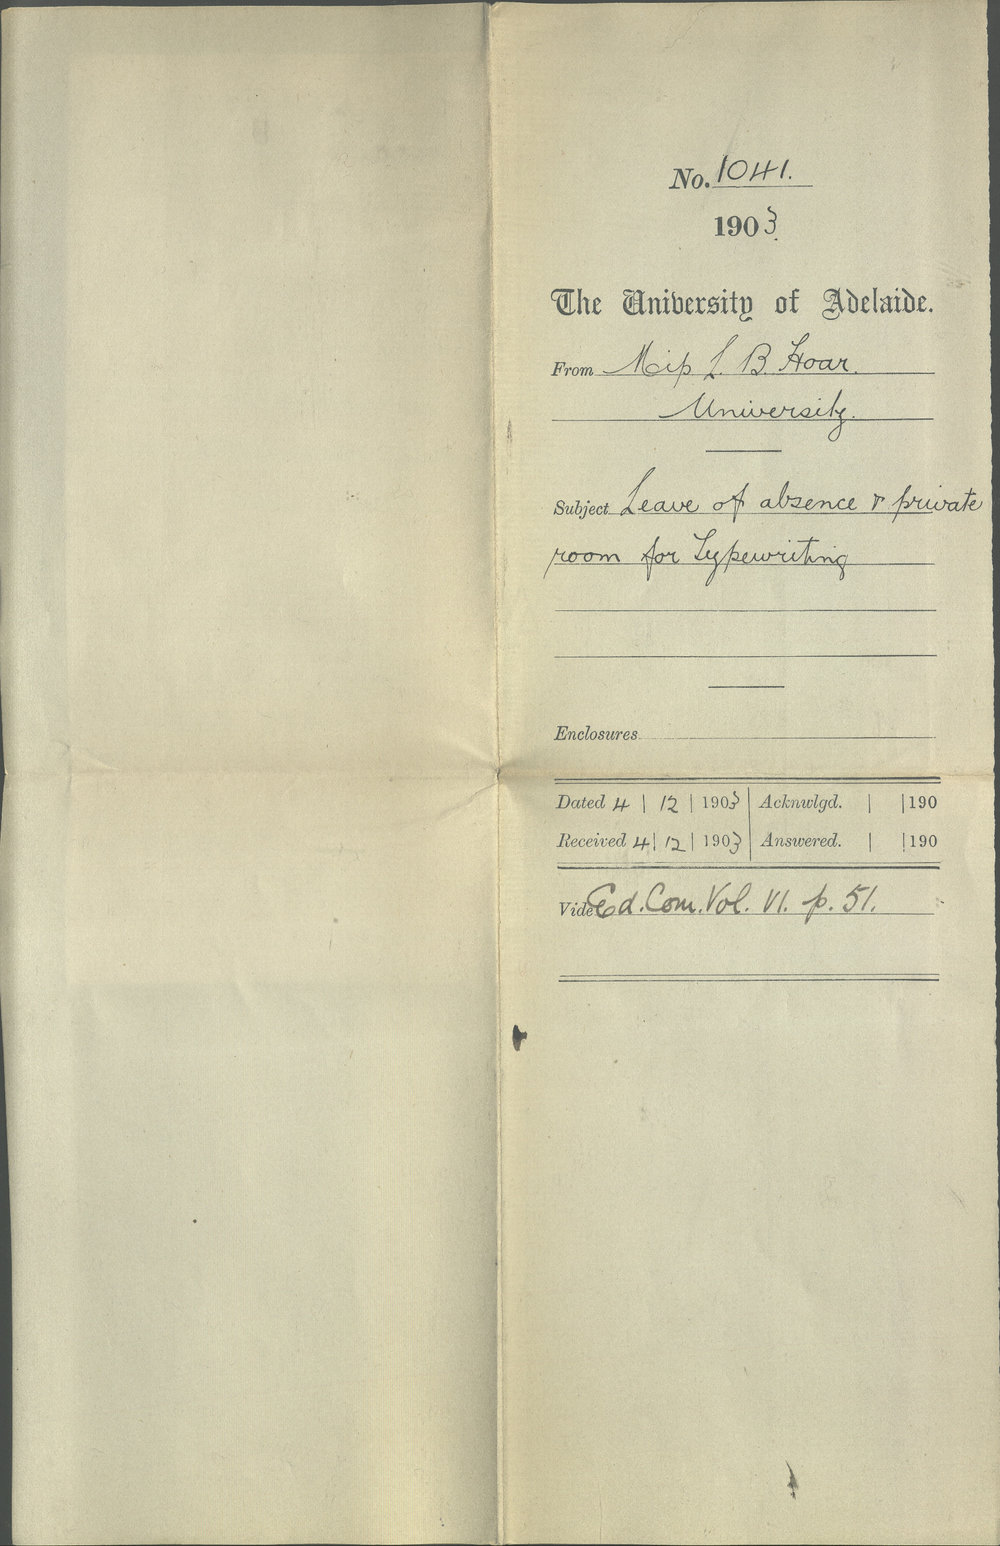 No. 1041.
1903
The University of Adelaide.
From Miss L. B. Hoar.
University.
Subject Leave of absence & private
room for Typewriting
Enclosures
Dated 4 | 12 | 1903 | Acknwlgd. | | 190
Received 4 | 12 | 1903 | Answered. | | 190
Vide Ed. Com. Vol. VI. p. 51.